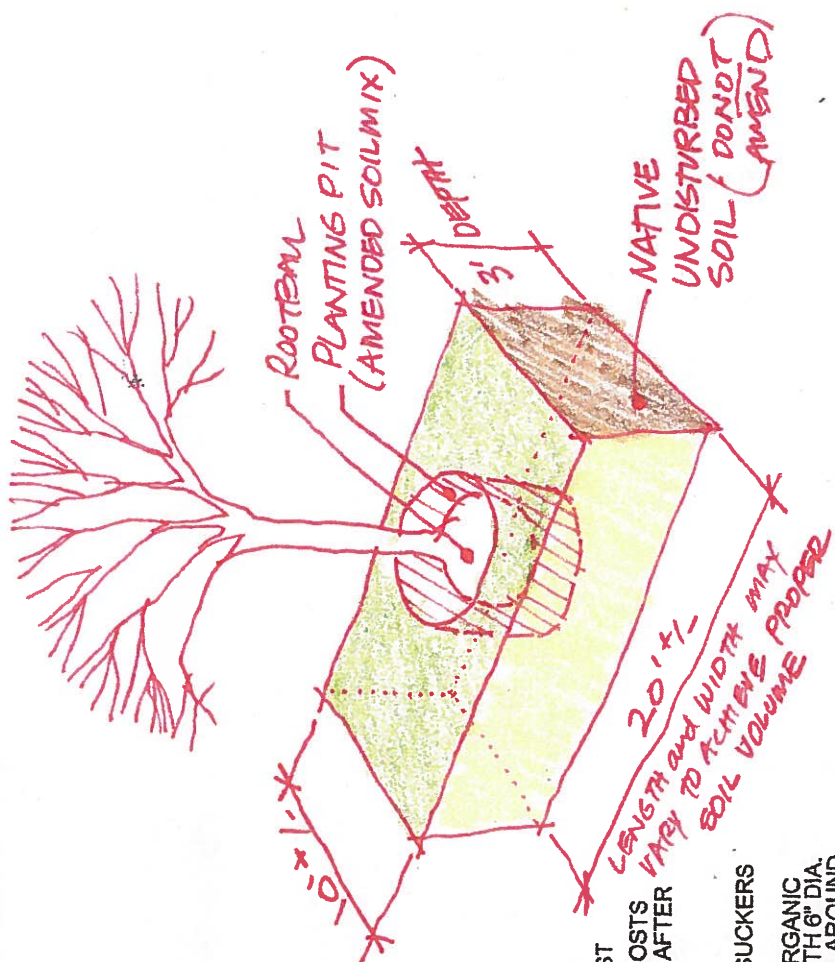 ROOTBALL
PLANTING PIT
(AMENDED SOIL MIX)
3' DEPTH
NATIVE
UNDISTURBED
SOIL (DO NOT
AMEND)
10' +/-
20' +/-
LENGTH and WIDTH MAY
VARY TO ACHIEVE PROPER
SOIL VOLUME
ST
OSTS
AFTER
SUCKERS
RGANIC
TH 6" DIA.
AROUND